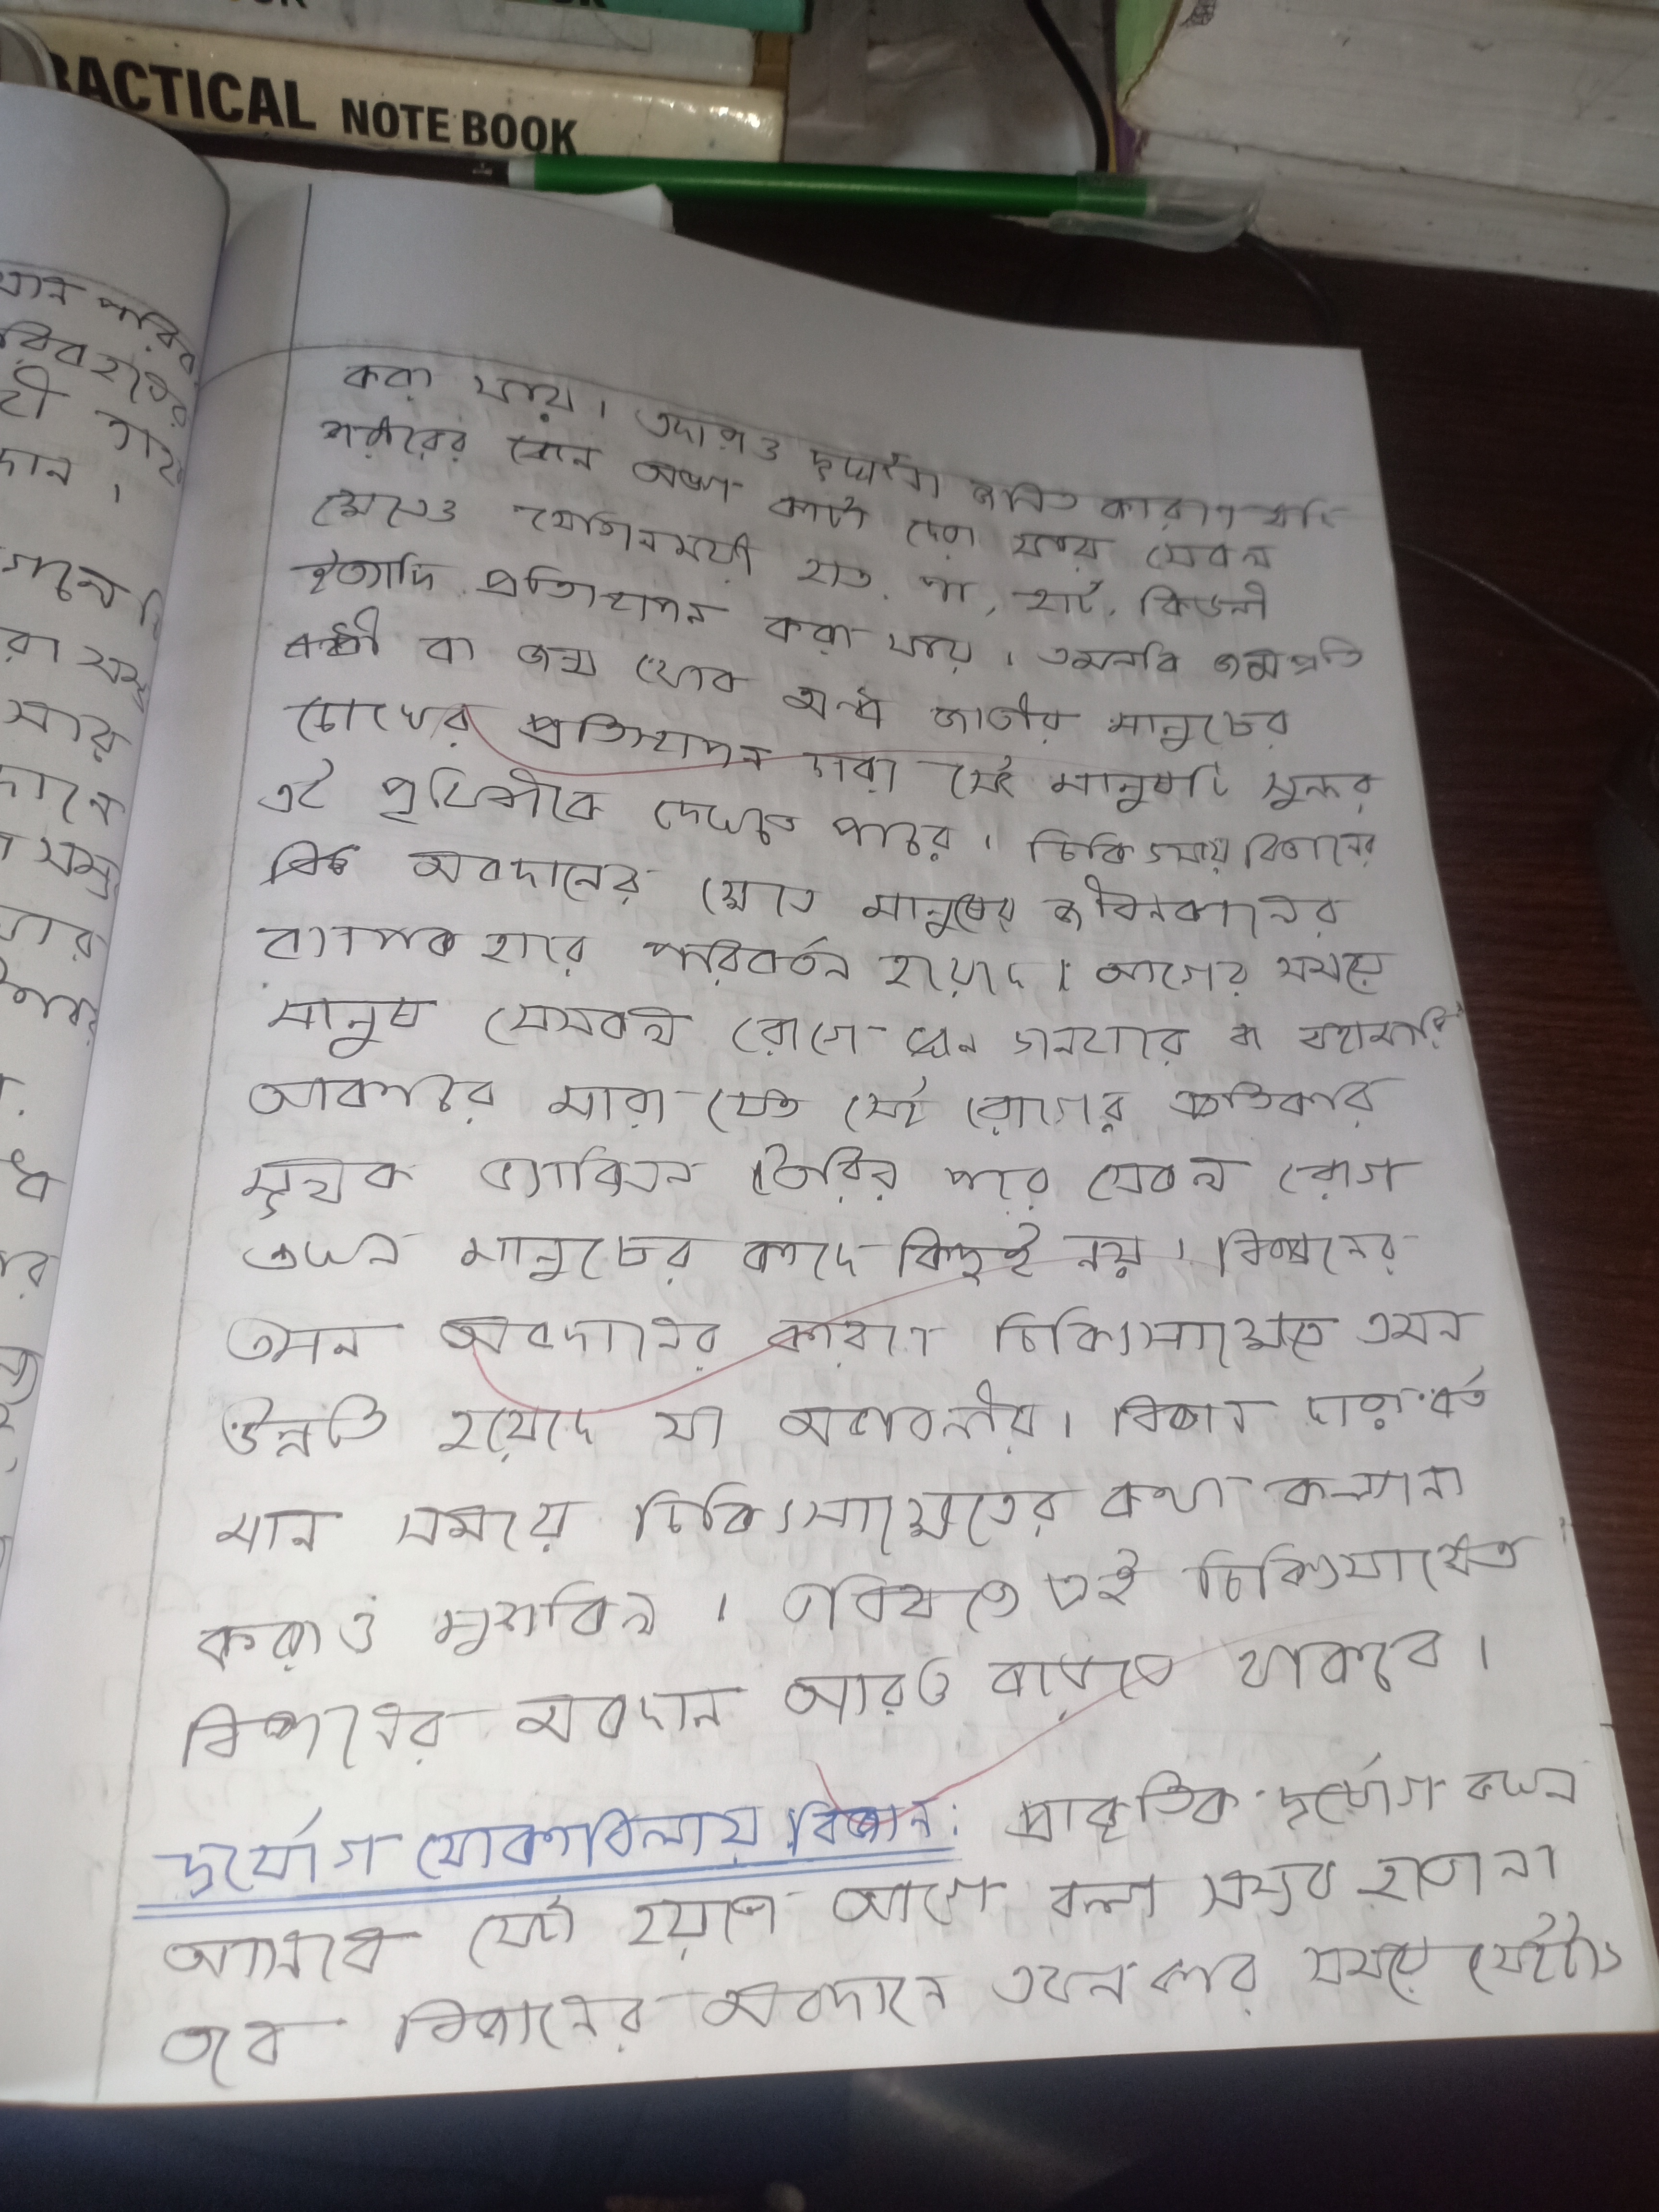 PRACTICAL NOTE BOOK
করা যায়। এদাড়াও দুর্ঘটনা জনিত কারণে যদি
শরীরের কোন অঙ্গ কাটা দেয়া যায় সেকল
ক্ষেত্রেও মেডিসনময়ী হাত, পা, হার্ট, কিডনী
ইত্যাদি প্রতিস্থাপন করা যায়। এমনকি জন্মপ্রতি
বন্ধী বা জন্ম থেকে অন্ধ জাতীয় মানুষের
চোখের প্রতিস্থাপন দ্বারা সেই মানুষটি সুন্দর
এই পৃথিবীকে দেখতে পারে। চিকিৎসায় বিজ্ঞানের
অবদানের ক্ষেত্রে মানুষের জীবনকালের
ব্যাপক হারে পরিবর্তন হয়েদে। আগের সময়ে
মানুষ যেসকল রোগে গনহারে বা মহামারি
আকারে মারা যেত সেই রোগের প্রতিকার
মূলক ভ্যাকিসন তৈরির পরে সেকল রোগ
এখন মানুষের কাদে কিছুই নয়। বিজ্ঞানের
এমন অবদানের কারণে চিকিৎসাক্ষেত্রে এমন
উন্নতি হয়েদে যা অভাবনীয়। বিজ্ঞান দ্বারা বর্ত
মান সময়ে চিকিৎসাক্ষেত্রের কথা কল্পনা
করাও মুশকিল। ভবিষতে এই চিকিৎসাক্ষেত্রে
বিজ্ঞানের অবদান আরও বাড়তে থাকবে।
দুর্যোগ মোকাবিলায় বিজ্ঞান: প্রাকৃতিক দুর্যোগ কখন
আসবে সেটা হয়তো আগে বলা সম্ভব হতো না
তবে বিজ্ঞানের অবদানে এখনকার সময়ে সেইটাও